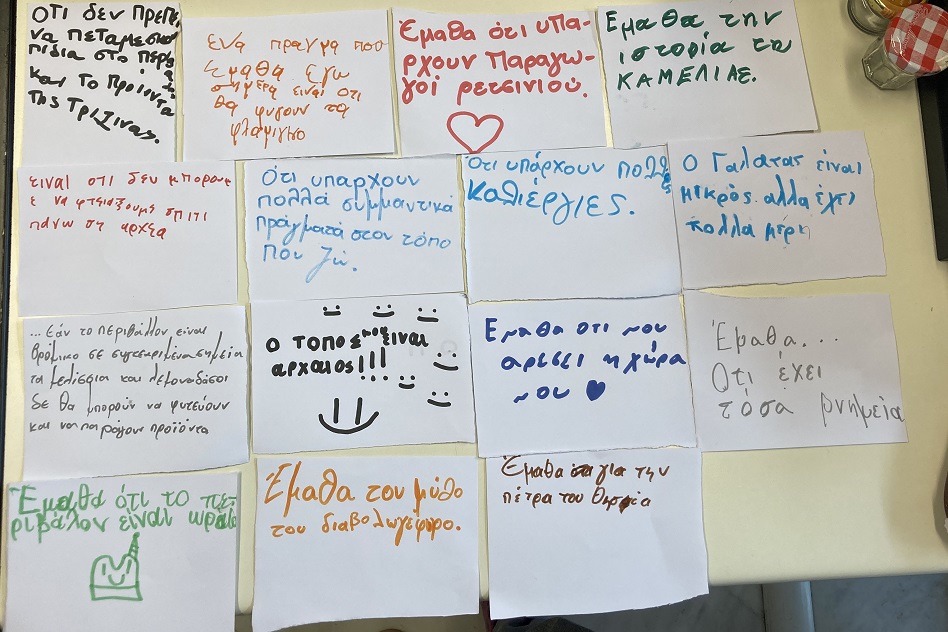 ΟΤΙ ΔΕΝ ΠΡΕΠΕ
ΝΑ ΠΕΤΑΜΕ ΣΚΟΥ
ΠΙΔΙΑ ΣΤΟ ΠΕΡΙ
ΚΑΙ ΤΟ ΠΡΟΙΟΝΤΑ
ΤΗΣ ΤΡΙΖΙΝΑΣ.
ΕΝΑ πραγμα που
Εμαθα εγω
σημερα ειναι οτι
θα φυγουν τα
φλαμιγκο
Έμαθα ότι υπα-
ρχουν παραγω-
γοί ρετσινιού.
Εμαθα την
ιστορία τα
ΚΑΜΕΛΙΑΣ.
ειναι οτι δεν μπορουμ
ε να φτειαξουμε σπιτι
πανω στ αρχεα
Ότι υπαρχουν
πολλά συμμαντικά
πράγματα στον τόπο
που ζω.
Ότι υπάρχουν πολλ
ες
καθιέργιες.
Ο Γαλατας είναι
μικρός αλλα έχει
πολλα μερη
... Εάν το περιβάλλον είναι
βρόμικο σε συγκεκριμένα σημεία
τα μελίσσια και λεμονοδάσοι
δε θα μπορούν να φυτεύουν
και να παράγουν προϊόντα
Ο ΤΟΠΟΣ μου ΕΙΝΑΙ
ΑΡΧΑΙΟΣ!!!
Εμαθα οτι μου
αρεσει η χώρα
μου
Έμαθα...
Οτι έχει
τόσα μνημεία
Έμαθα ότι το πε-
ριβάλον είναι ωραίο
Έμαθα τον μύθο
του διαβολωγέφυρο.
Έμαθα για την
πέτρα του Θησέα